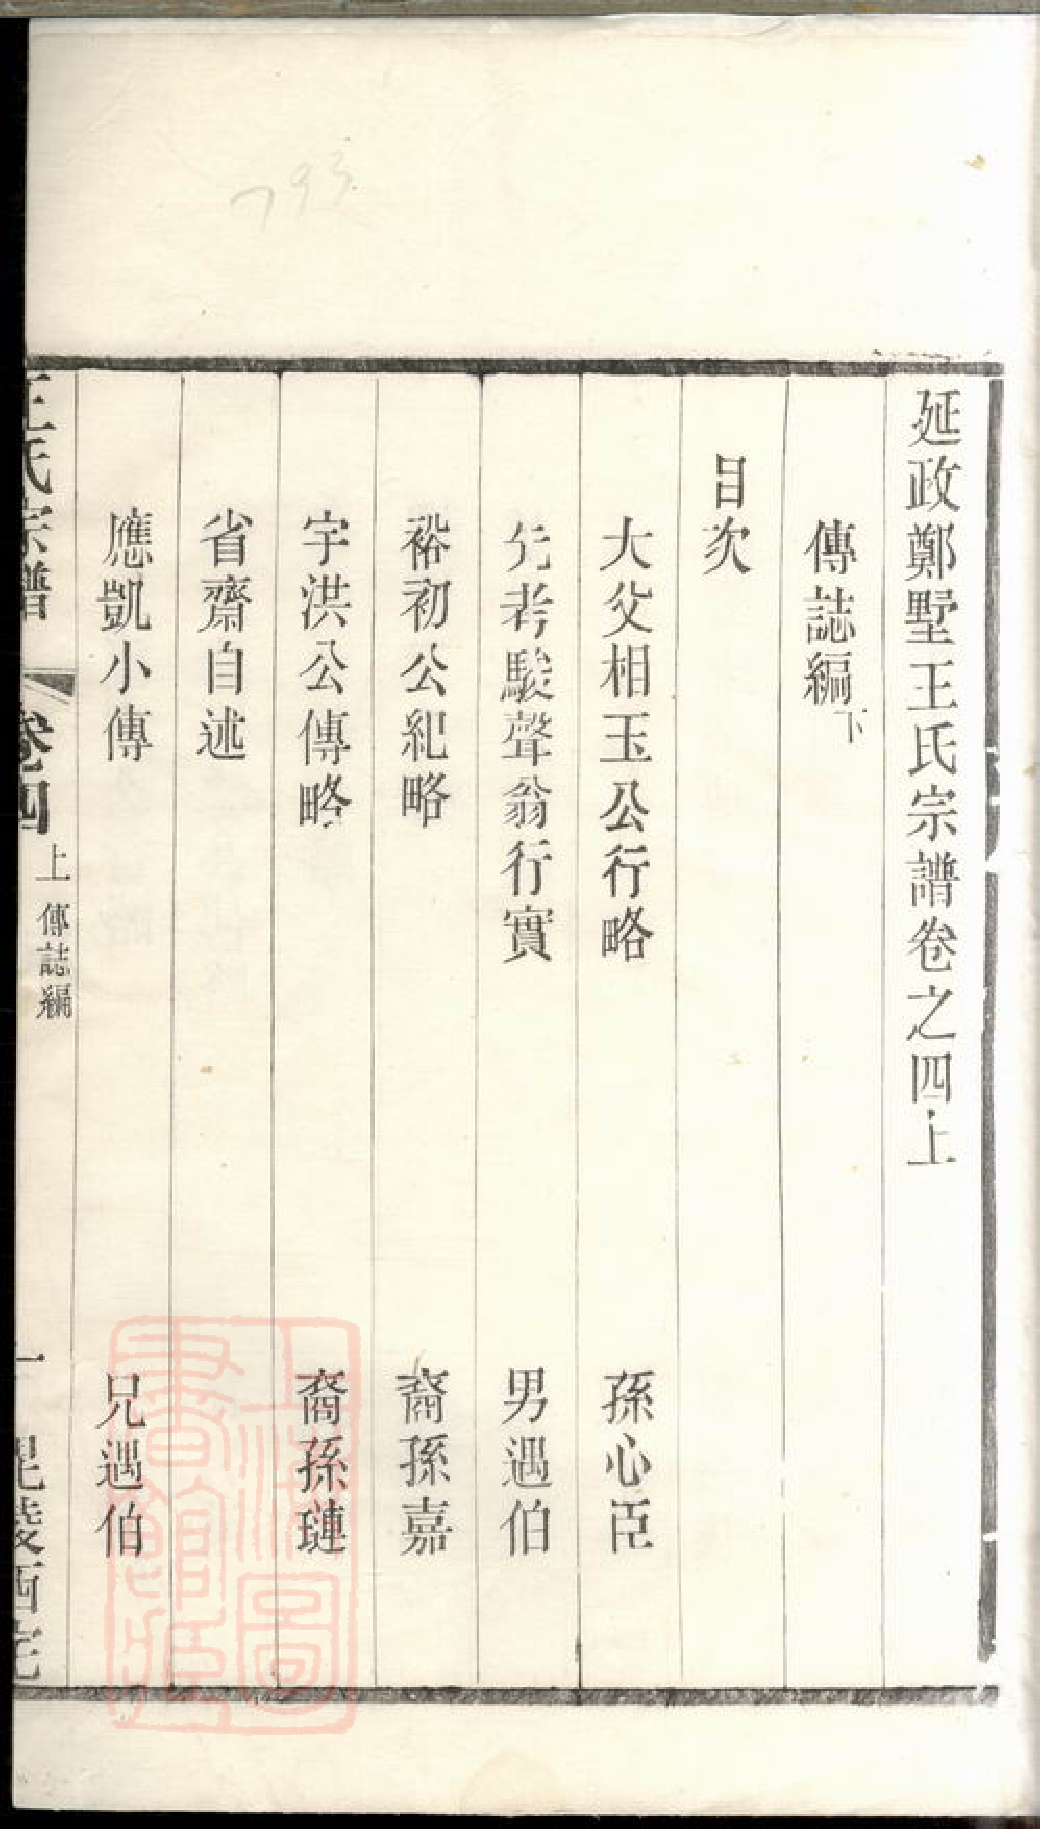 延政鄭墅王氏宗譜卷之四上
傳誌編下
目次
大父相玉公行略 孫心臣
先考駿聲翁行實 男遇伯
裕初公紀略 裔孫嘉
宇洪公傳略 裔孫璉
省齋自述
應凱小傳 兄遇伯
王氏宗譜 卷四上 傳誌編 一 毘陵西宅
上海圖書館藏
793